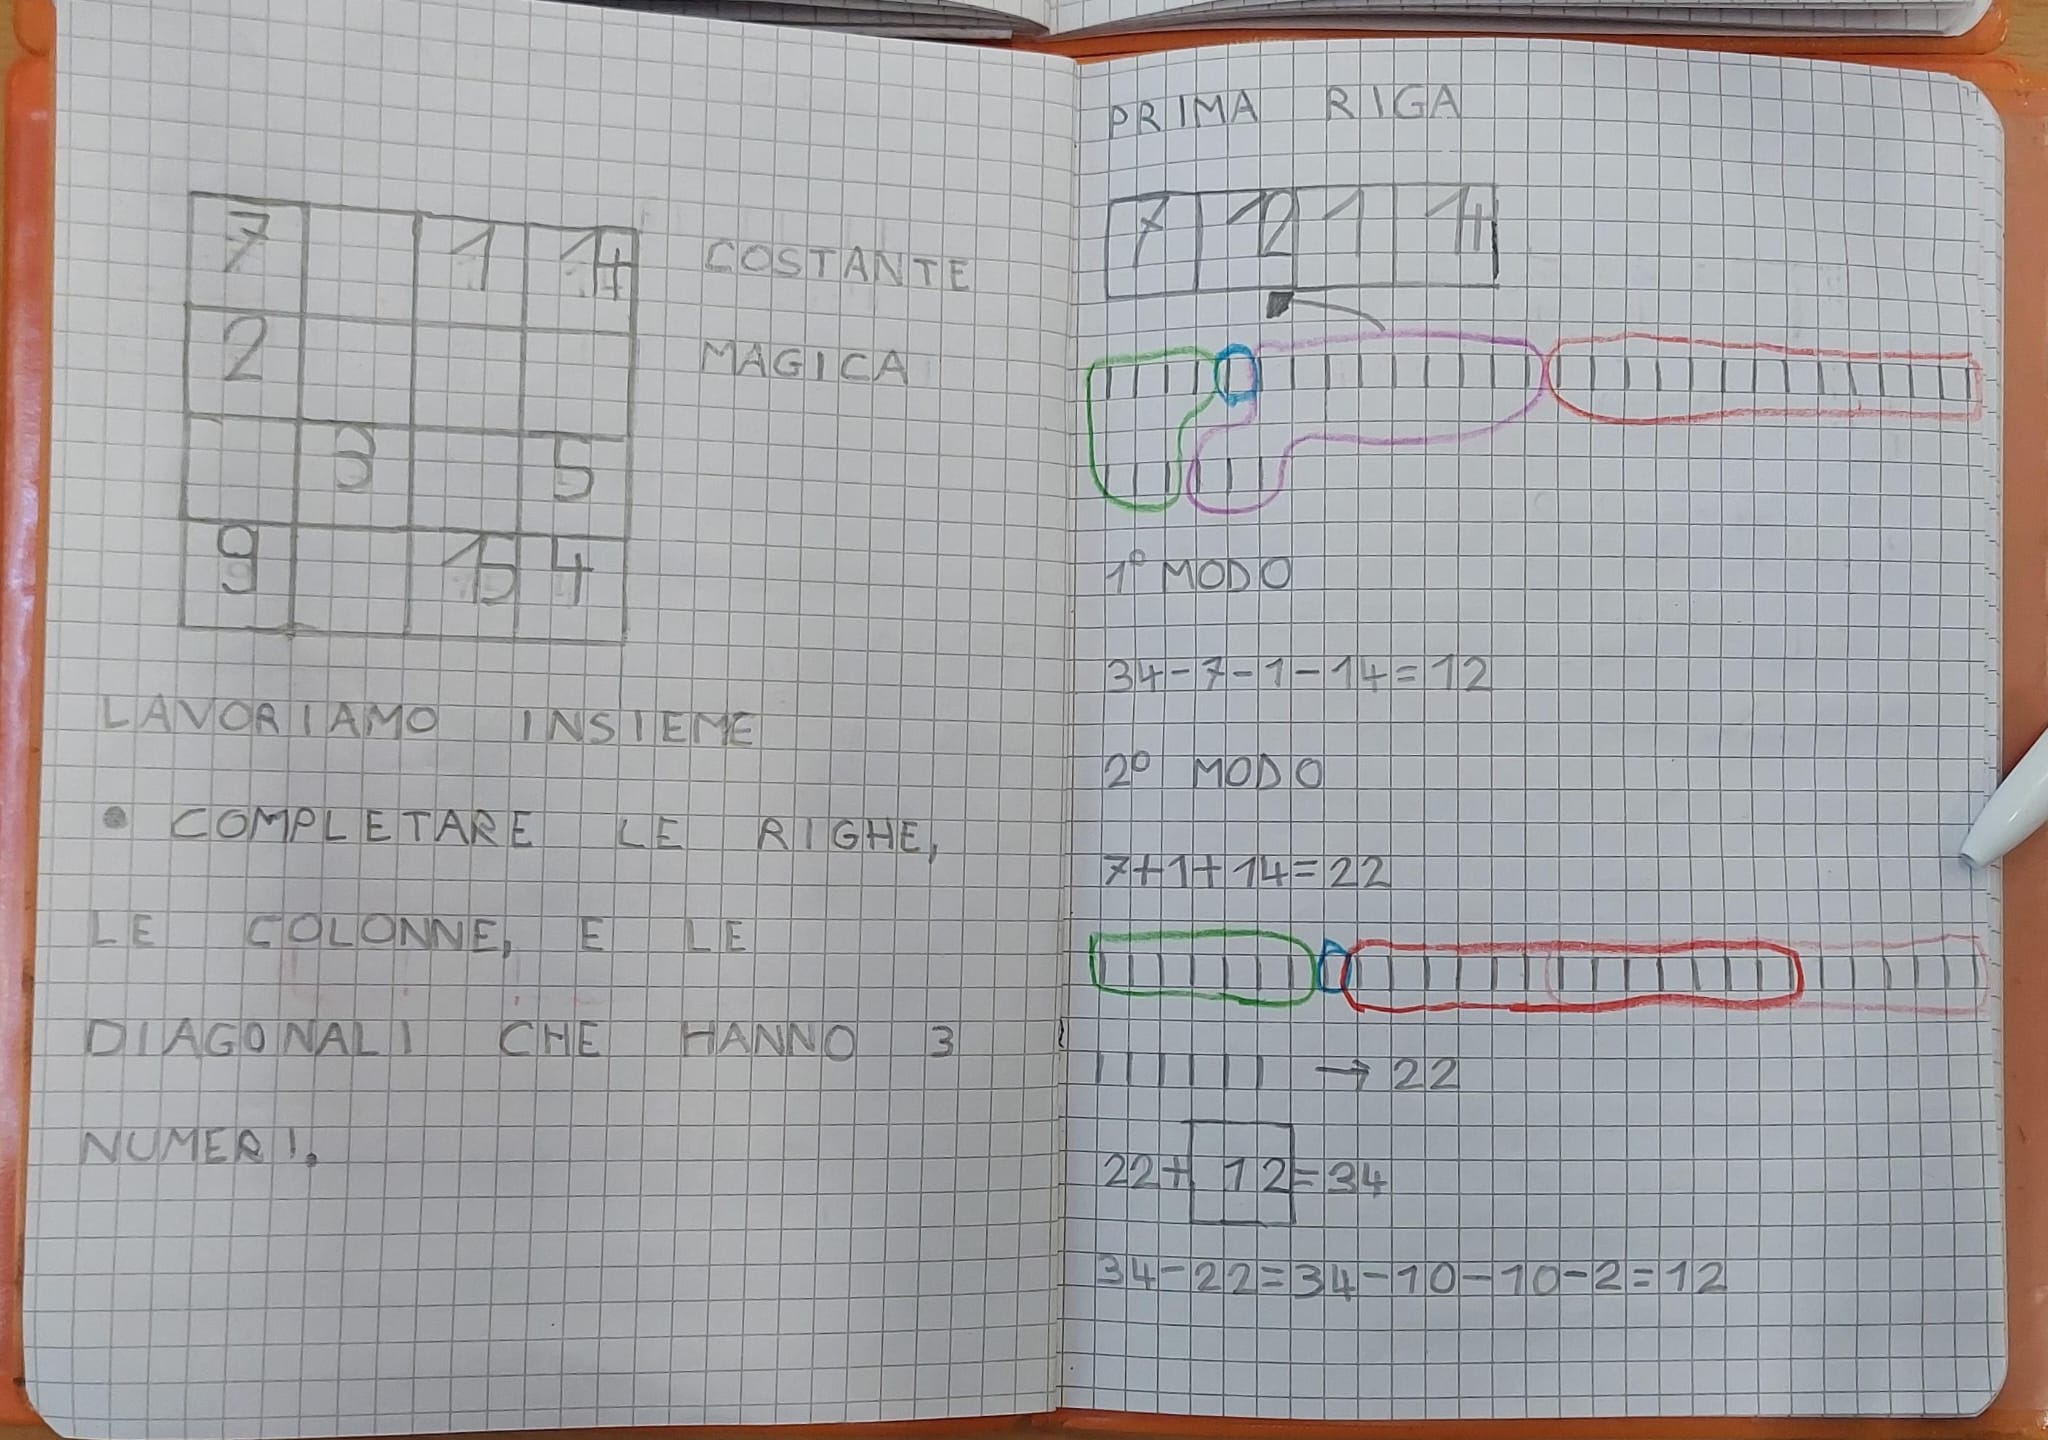 7 1 14 COSTANTE
2 MAGICA
3 5
9 15 4
LAVORIAMO INSIEME
• COMPLETARE LE RIGHE,
LE COLONNE, E LE
DIAGONALI CHE HANNO 3
NUMERI.
PRIMA RIGA
7 12 1 14
1° MODO
34-7-1-14=12
2° MODO
7+1+14=22
→ 22
22+12=34
34-22=34-10-10-2=12